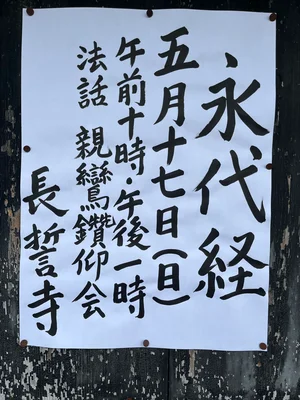 永代経
五月十七日(日)
午前十時・午後一時
法話 親鸞鑽仰会
長誓寺